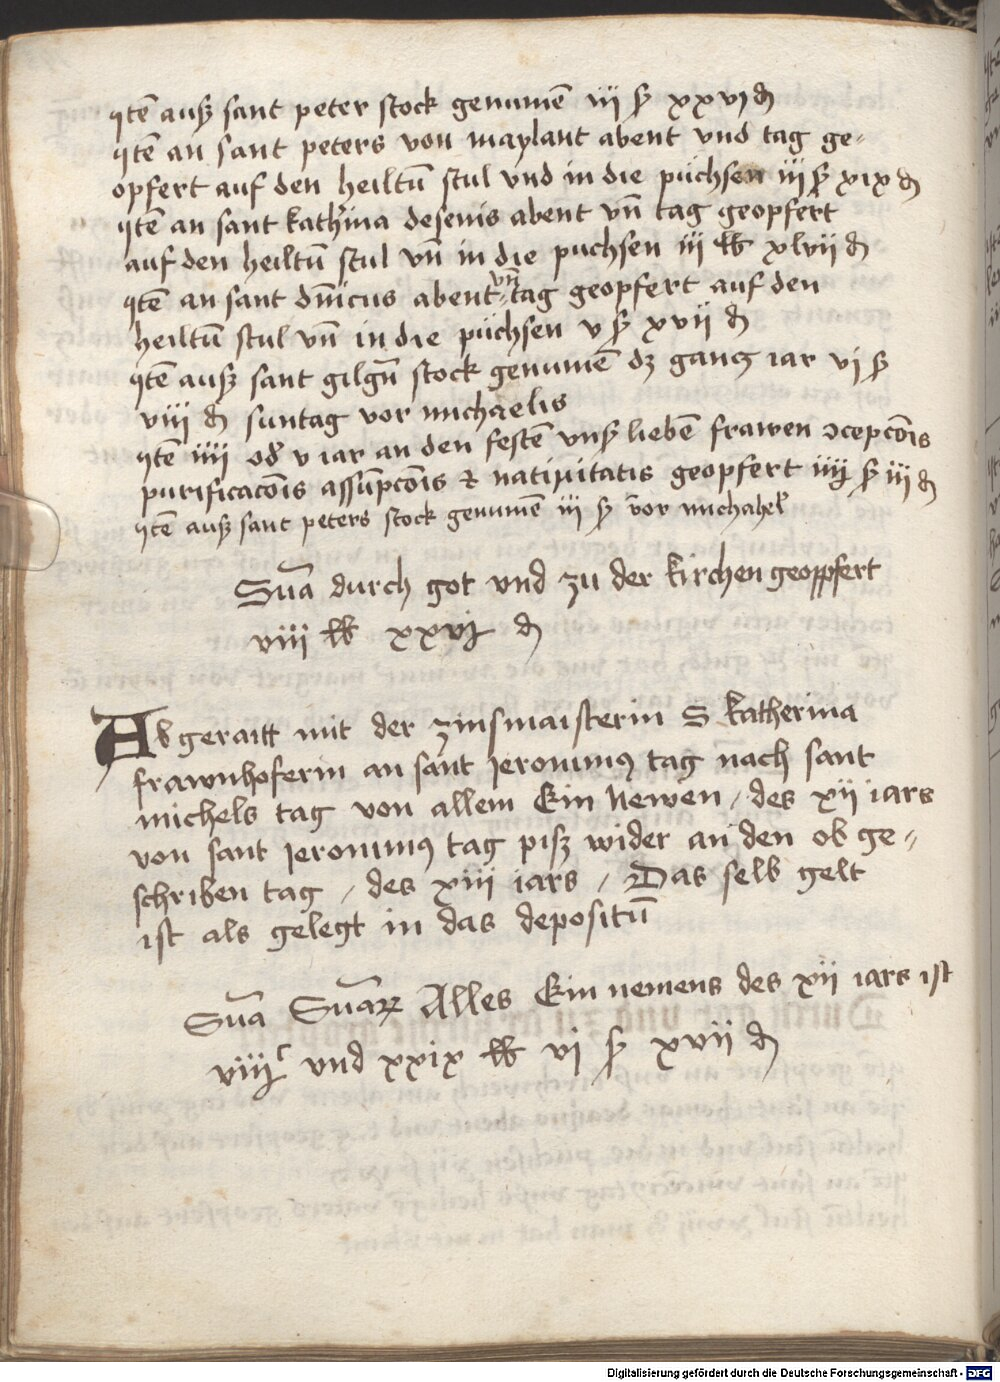 Itē auß sant peter stock genumē iij ß xxvj ₰
Itē an sant peters von maylant abent vnd tag ge-
opfert auf den heiltū stul vnd in die püchsen iij ß xix ₰
Itē an sant katherina desenis abent vn̄ tag geopfert
auf den heiltū stul vn̄ in die puchsen iij ℔ xlvij ₰
Itē an sant dn̄icus abent vn̄ tag geopfert auf den
heiltū stul vn̄ in die püchsen v ß xvij ₰
Itē auß sant gilgn̄ stock genumē dz gancz iar vj ß
viij ₰ suntag vor michaelis
Itē iiij od̉ v iar an den festē vnß liebē frawen ↄcepcōis
purificacōis assūpcōis et natiuitatis geopfert iiij ß iij ₰
Itē auß sant peters stock genumē iij ß vor michahel̉
Sūa durch got vnd zu der kirchen geopfert
viij ℔ xxvj ₰
Abgeraitt mit der zinsmaisterin S katherina
frawnhoferin an sant Jeronimus tag nach sant
michels tag von allem Ein Newen / des xij iars
von sant Jeronimus tag piß wider an den ob ge-
schriben tag / des xiij iars / Das selb gelt
ist als gelegt in das depositū
Sūa Sūarꝝ Alles Ein nemens des xij iars ist
viiijᶜ vnd xxix ℔ vj ß xvij ₰
Digitalisierung gefördert durch die Deutsche Forschungsgemeinschaft - DFG